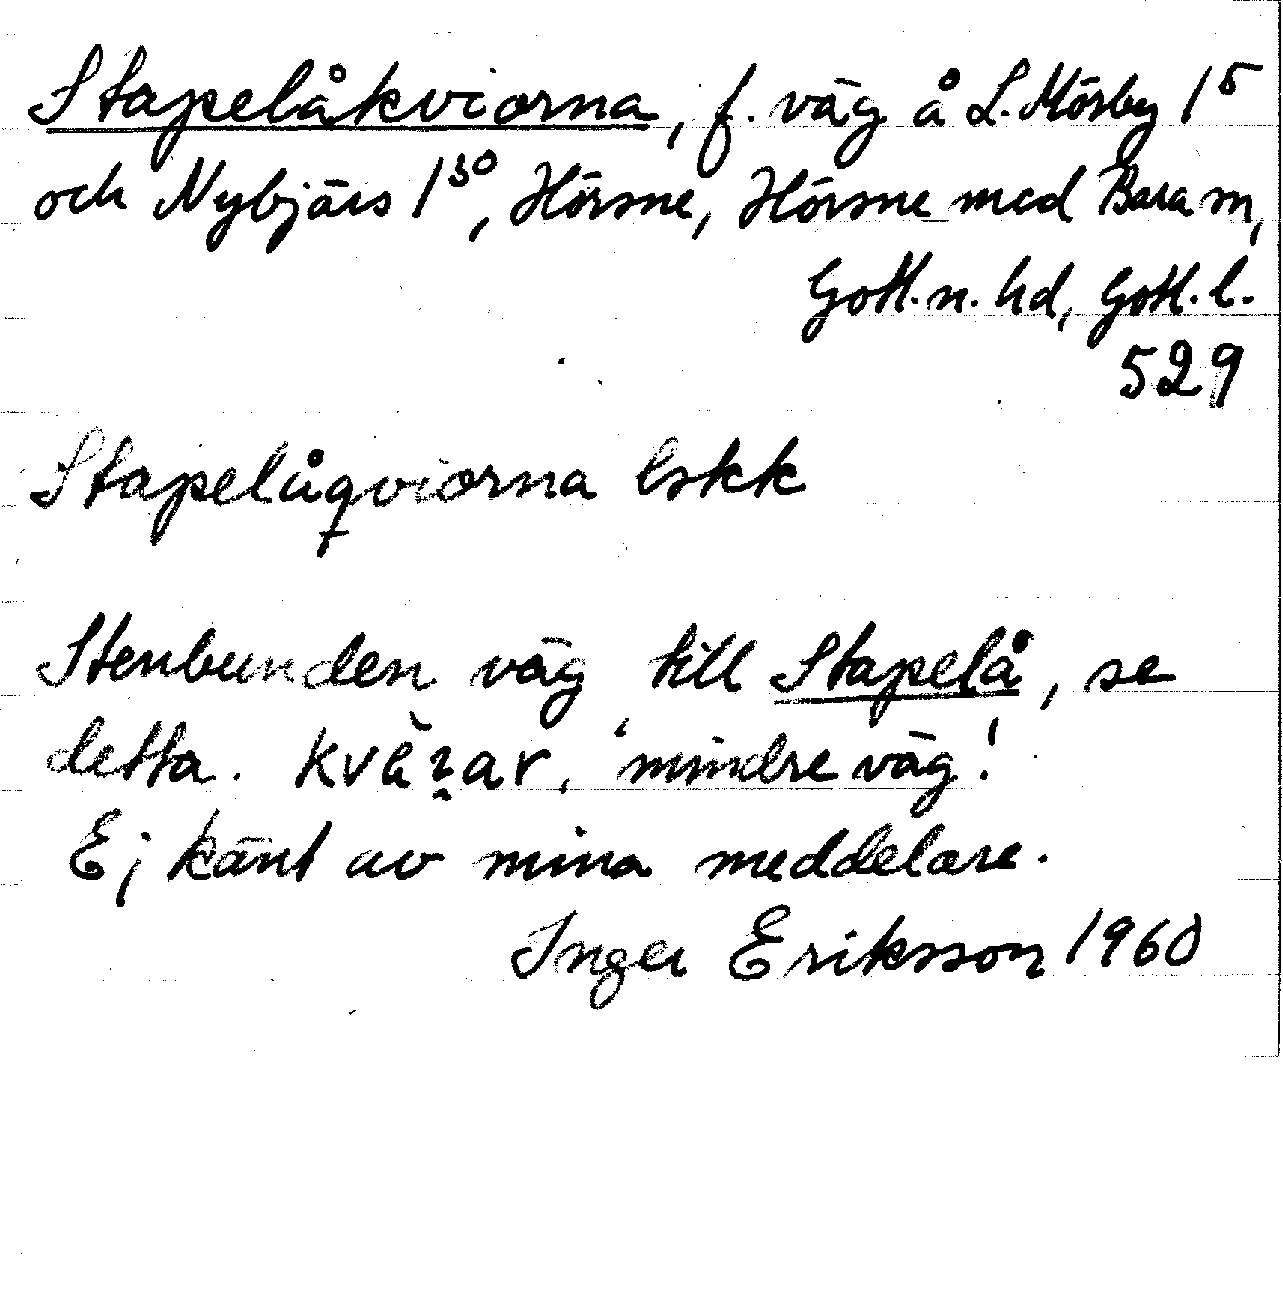 Stapelåkviorna, f. väg å L. Mörby 1⁵
och Nybjärs 1³⁰, Hörsne, Hörsne med Bara sn,
Gotl. n. hd, Gotl. l.
529
Stapelåqviorna lskk
Stenbunden väg till Stapelå, se
detta. kväᶎar, 'mindre väg'.
Ej känt av mina meddelare.
Inger Eriksson 1960